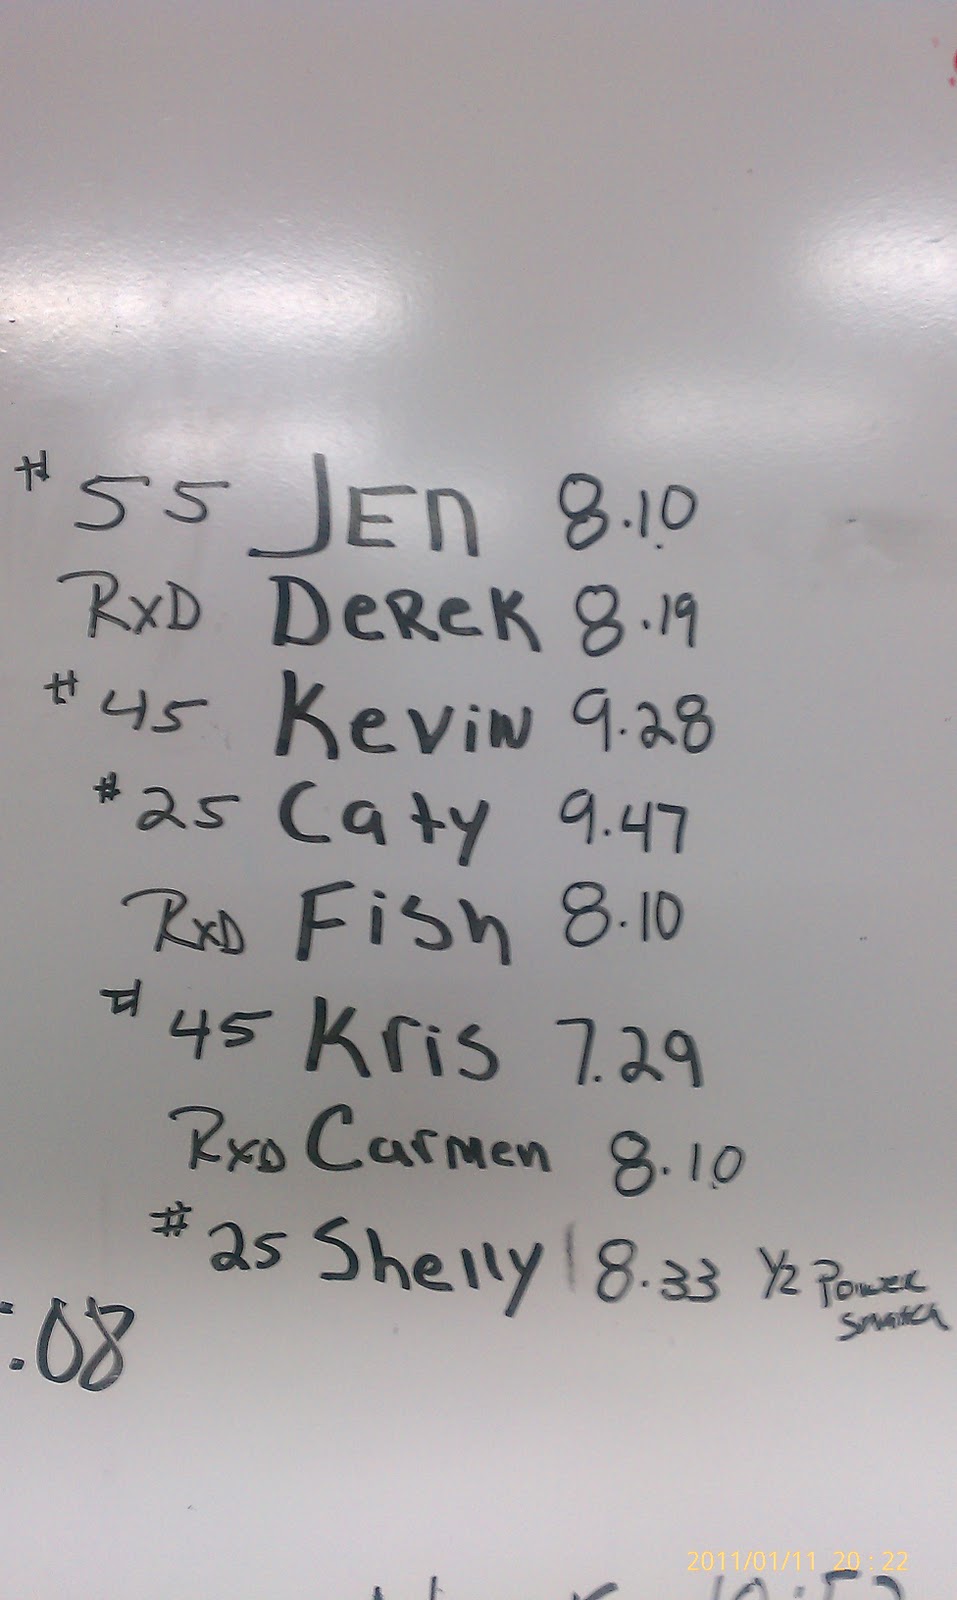 # 55 JEN 8.10
RXD DeReK 8.19
# 45 Kevin 9.28
# 25 Caty 9.47
RXD Fish 8.10
# 45 Kris 7.29
RXD Carmen 8.10
# 25 Shelly 8.33 1/2 Power
Snatch
:08
2011/01/11 20:22